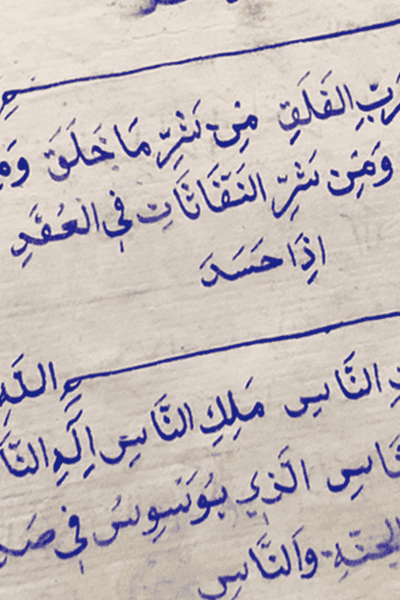 رَبِّ الفَلَقِ مِن شَرِّ مَا خَلَقَ وَمِ
وَمِن شَرِّ النَّفَّاثَاتِ فِي العُقَدِ
اِذَا حَسَدَ
اللّٰهِ
النَّاسِ مَلِكِ النَّاسِ اِلٰهِ النَّا
نَّاسِ الَّذِي يُوَسوِسُ فِي صُد
الجِنَّةِ وَالنَّاسِ